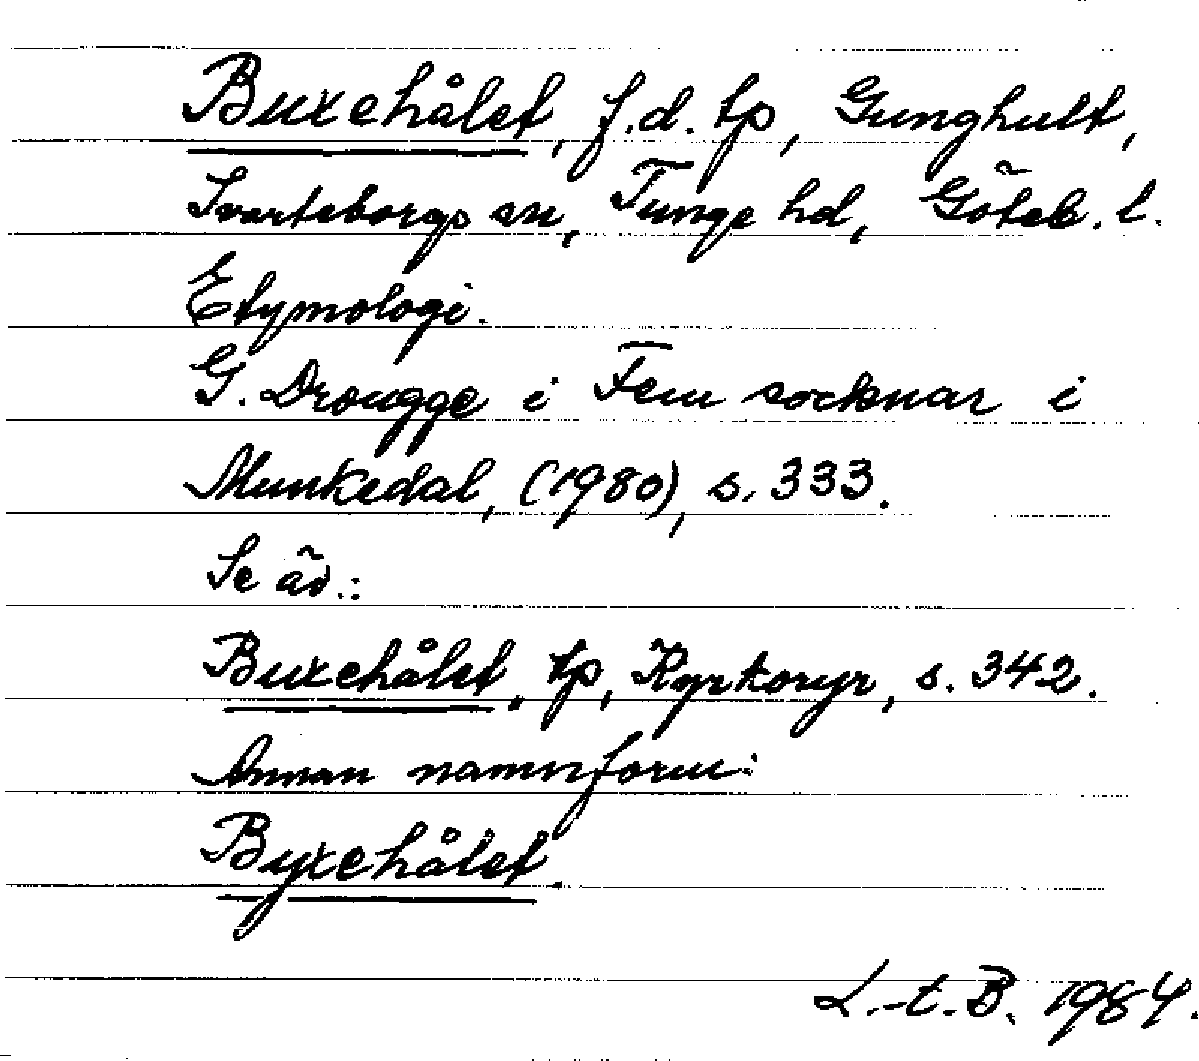 Buxehålet, f.d. tp, Gunghult,
Svarteborgs sn, Tunge hd, Göteb. l.
Etymologi.
G. Drougge i Fem socknar i
Munkedal, (1980), s. 333.
Se äv.:
Buxehålet, tp, Kyrkoryr, s. 342.
Annan namnform:
Byxehålet.
L.-t. B. 1984.